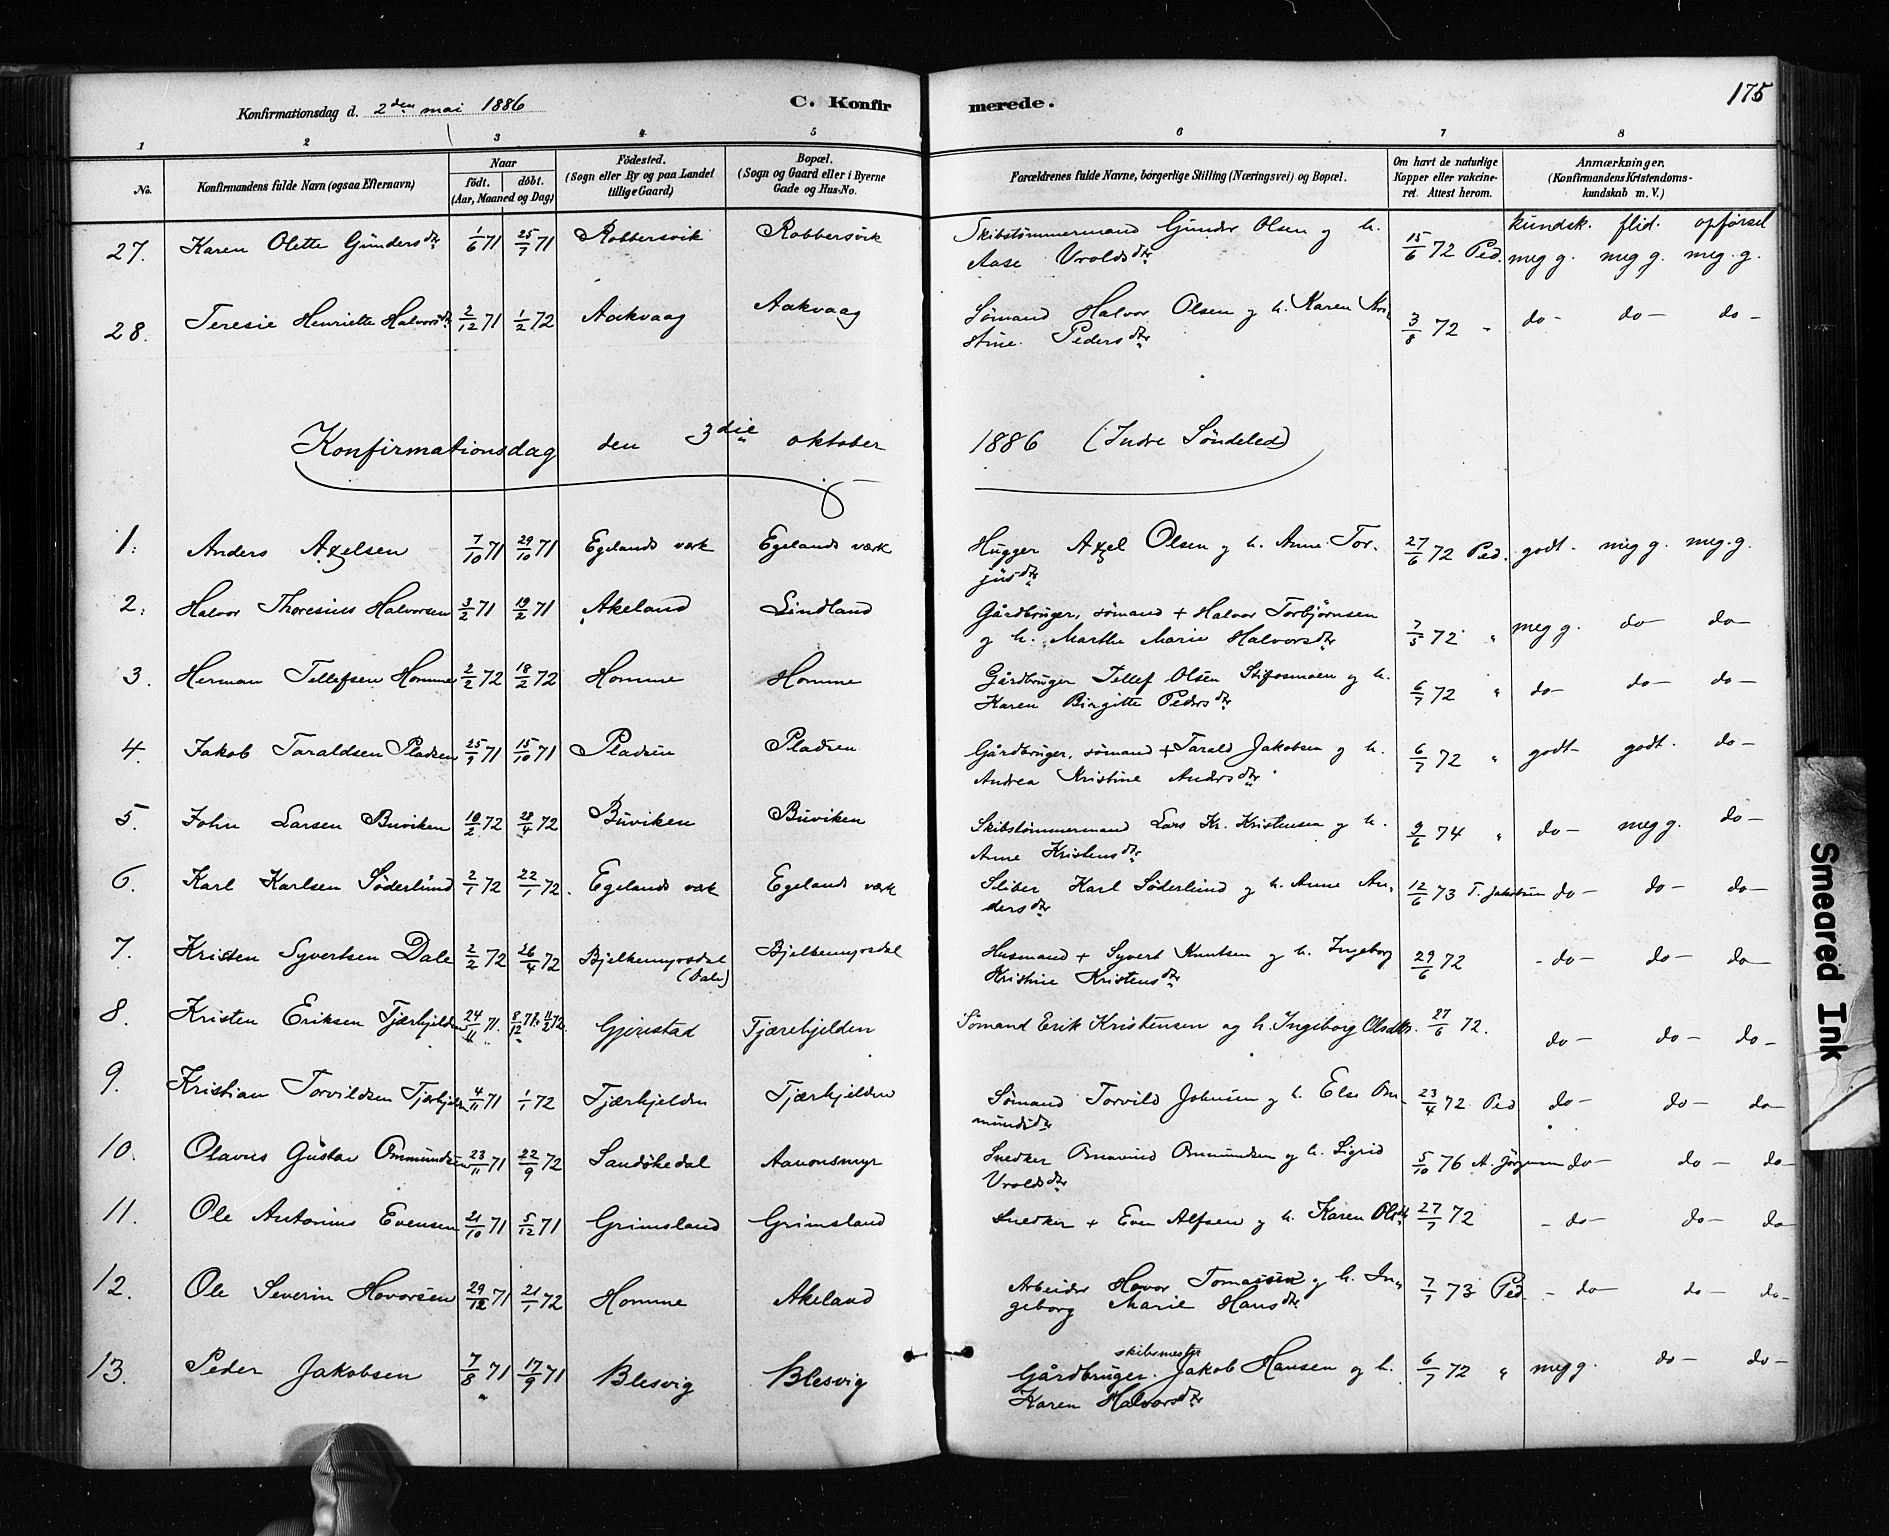 175
Konfirmationsdag d. 2den mai 1886
C. Konfirmerede.
1 2 3 4 5 6 7 8
No. Konfirmandens fulde Navn (ogsaa Efternavn) Naar født. døbt. (Aar, Maaned og Dag) Födested. (Sogn eller By og paa Landet tillige Gaard) Bopæl. (Sogn og Gaard eller i Byerne Gade og Hus-No. Forældrenes fulde Navne, borgerlige Stilling (Næringsvei) og Bopæl. Om havt de naturlige Kopper eller vakcineret. Attest herom. Anmærkninger. (Konfirmandens Kristendomskundskab m. V.)
kundsk. flid. opførsel
27. Karen Olette Gunders dtr 1/6 71 25/7 71 Robbersvik Robbersvik Skibstømmermand Gunder Olsen og h. Aase Vrolds dtr 15/6 72 Ped. meg g. meg g. meg. g.
28. Teresie Henriette Halvorsdtr 2/12 71 1/2 72 Aakvaag Aakvaag Sømand Halvor Olsen og h. Karen Kristine Peders dtr 3/8 72 " do - do - do -
Konfirmationsdag den 3die oktober 1886 (Indre Søndeled)
1. Anders Axelsen 7/10 71 29/10 71 Egelands værk Egelands værk Hugger Axel Olsen og h. Anne Torjus dtr 27/6 72 Ped. godt. meg g. meg. g.
2. Halvor Thoresius Halvorsen 3/2 71 19/2 71 Akeland Lindland Gårdbruger, sømand + Halvor Torbjørnsen og h. Marthe Marie Halvorsdtr 7/5 72 " meg g. do - do -
3. Herman Tellefsen Homme 2/2 72 18/2 72 Homme Homme Gårdbruger Tellef Olsen Stifosmoen og h. Karen Birgitte Peders dtr 6/7 72 " do - do - do -
4. Jakob Taraldsen Pladsen 25/9 71 15/10 71 Pladsen Pladsen Gårdbruger, sømand + Tarald Jakobsen og h. Andrea Kristine Anders dtr 6/7 72 " godt - godt. do -
5. John Larsen Buviken 10/2 72 28/4 72 Buviken Buviken Skibstømmermand Lars Kr. Kristensen og h. Anne Kristens dtr 9/6 74 " do - meg g. do -
6. Karl Karlsen Søderlund 2/1 72 22/1 72. Egelands værk Egelands værk Sliber Karl Søderlund og h. Anne Anders dtr 12/6 73 T. Jakobsen do - do - do -
7. Kristen Syvertsen Dale 2/2 72 26/4 72 Bjelkemyrsdal (Dale) Bjelkemyrsdal Husmand + Syvert Knutsen og h. Ingeborg Kristine Kristens dtr 29/6 72 - do - do - do -
8. Kristen Eriksen Tjærhjelden 24/11 71. 8/12 71. 11/2 72. Gjerestad Tjærehjelden Sømand Erik Kristensen og h. Ingeborg Olsdtr. 27/6 72. do - do - do -
9. Kristian Torvildsen Tjærhjelden 4/11 71 1/1 72 Tjærhjelden Tjærhjelden Sømand Torvild Johnsen og h. Else Ommunds dtr 23/4 72 Ped do - do - do -
10. Olavus Gustav Ommundsen 23/11 71 22/9 72 Sandøkedal Aanonsmyr Snedker Ommund Ommundsen og h. Sigrid Vrolds dtr 5/10 76 A. Jørgensen do - do - do -
11. Ole Antonius Evensen 21/10 71 5/12 71 Grimsland Grimsland Snedker + Even Alfsen og h. Karen Olsdtr 27/7 72 - do - do - do -
12. Ole Severin Hovorsen 29/12 71 21/1 72 Homme Akeland Arbeider Hovor Tomassen og h. Ingeborg Marie Hans dtr 7/7 73 Ped. - do - do - do -
13. Peder Jakobsen 7/8 71 17/9 71 Blesvig Blesvig Gårdbruger. skibsmestr Jakob Hansen og h. Karen Halvors dtr 6/7 72 " meg g. do - do -
Smeared Ink